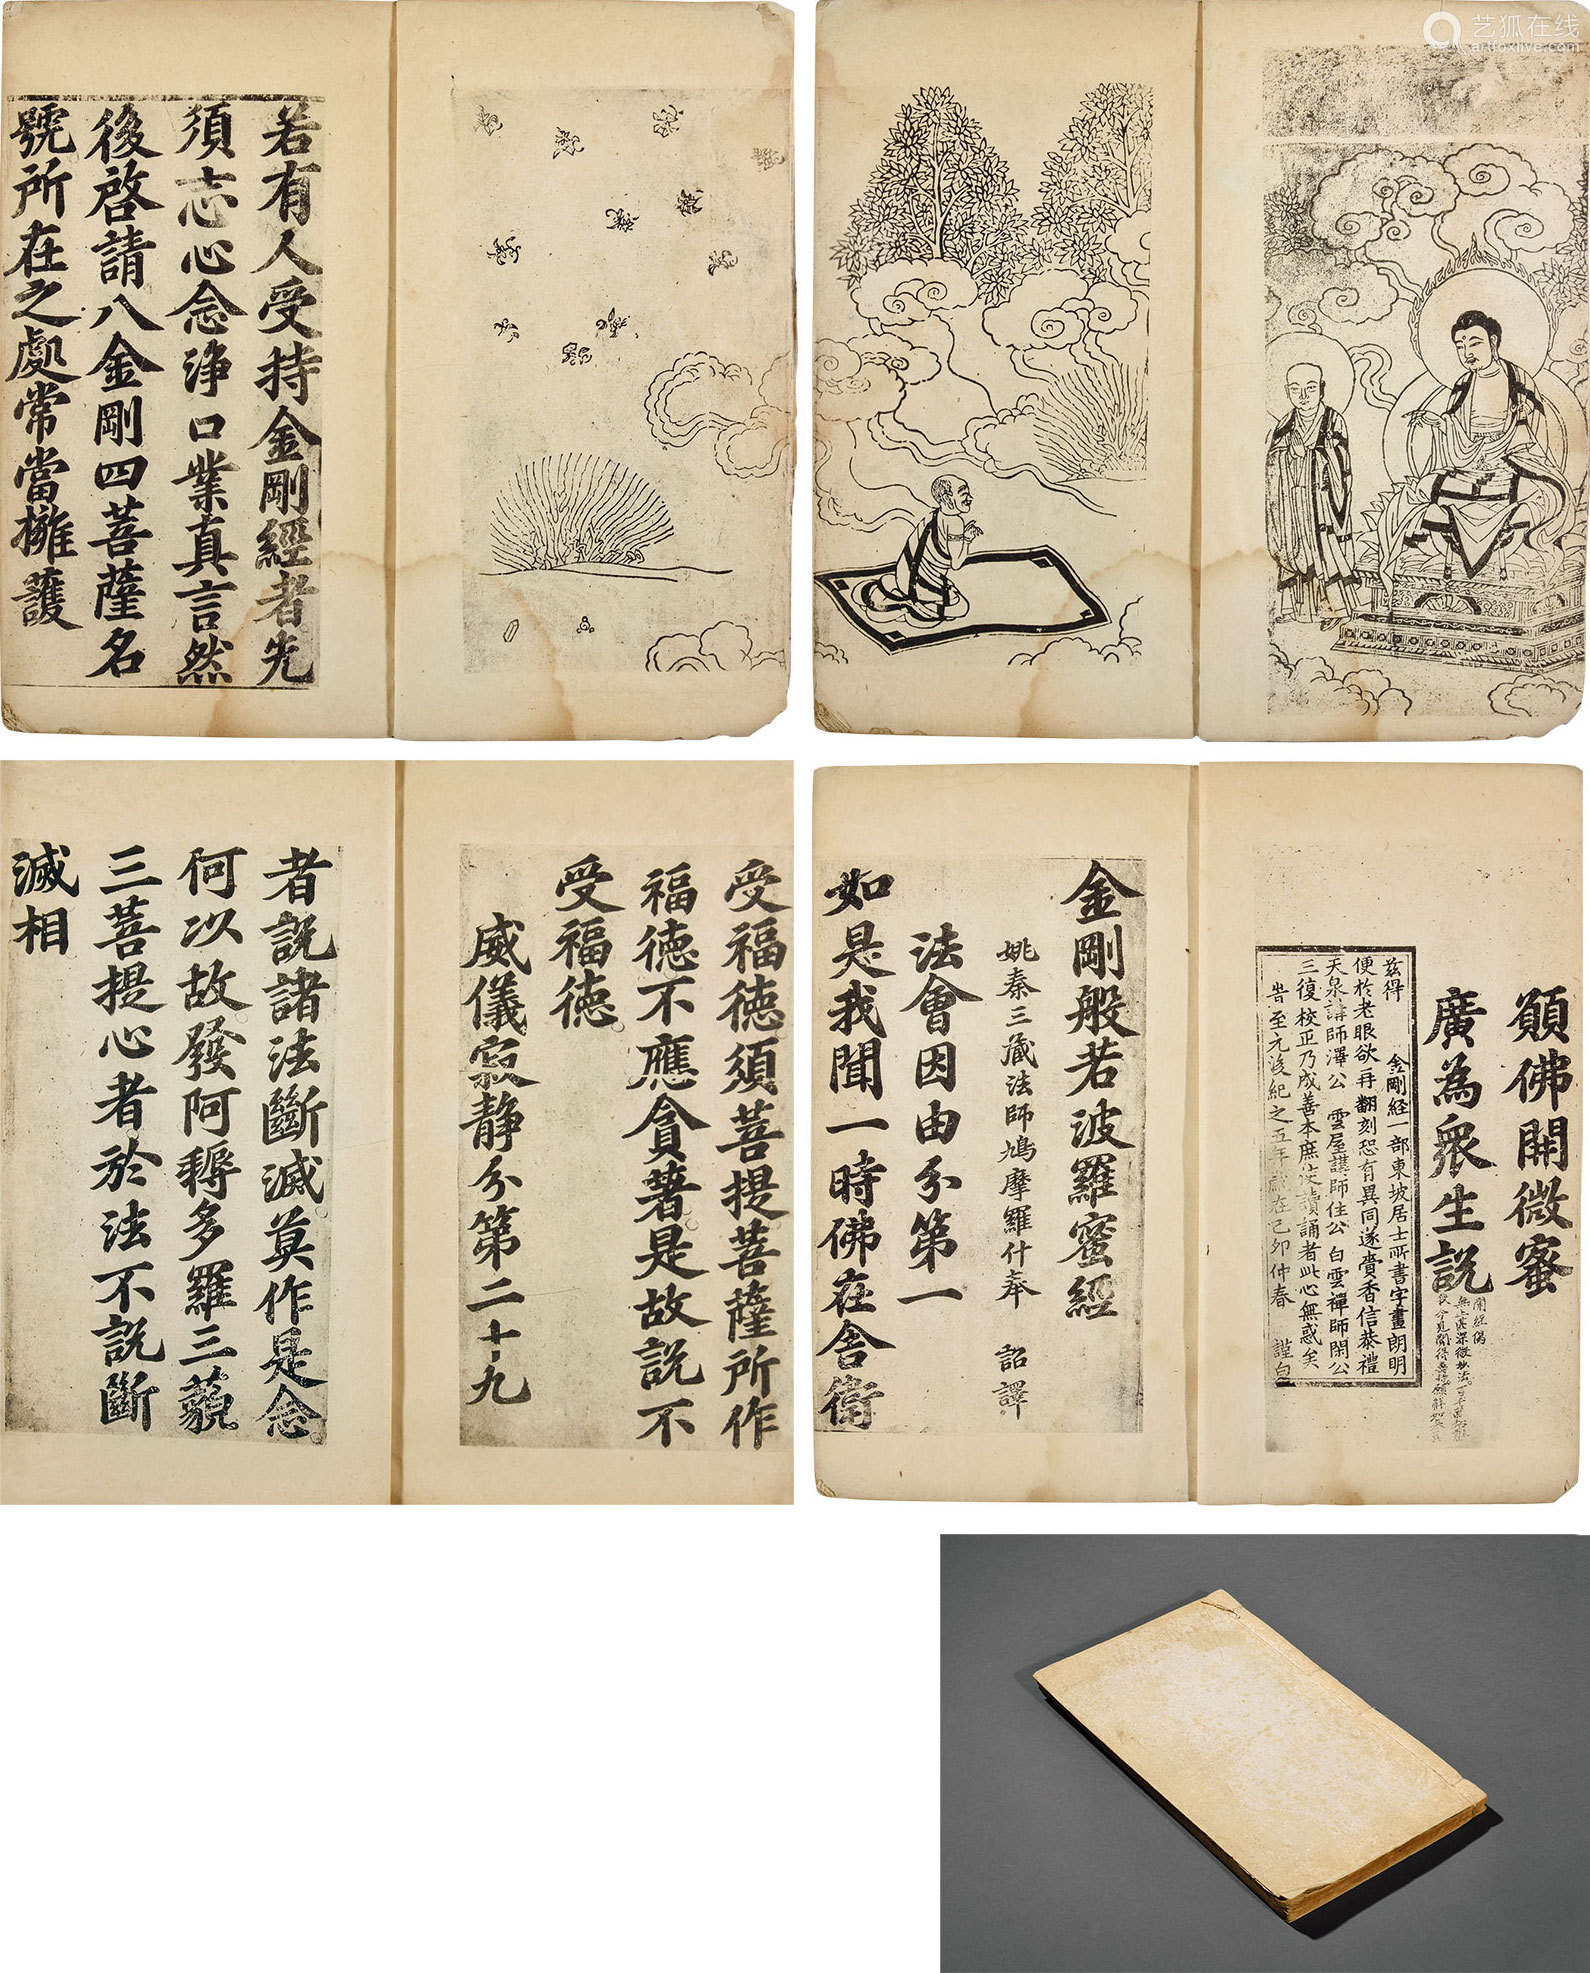 艺狐在线
artfoxlive.com
若有人受持金剛經者先
須志心念淨口業真言然
後啓請八金剛四菩薩名
號所在之處常當擁護
受福德須菩提菩薩所作
福德不應貪著是故説不
受福德
威儀寂静分第二十九
者説諸法斷滅莫作是念
何以故發阿耨多羅三藐
三菩提心者於法不説斷
滅相
願佛開微蜜
廣為衆生説
開經偈
茲得 金剛経一部東坡居士所書字畫朗明
便於老眼欲再翻刻恐有異同遂賫香信恭禮
天泉講師澤公 雲屋講師住公 白雲禪師閑公
三復校正乃成善本庶使讀誦者此心無惑矣
旹至元後紀之五年歲在己卯仲春 謹白
金剛般若波羅蜜經
姚秦三藏法師鳩摩羅什奉 詔譯
法會因由分第一
如是我聞一時佛在舍衛